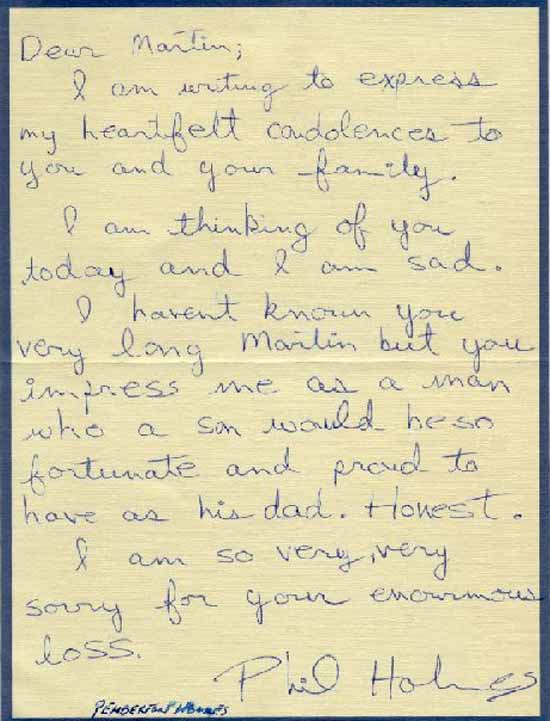 Dear Martin;
I am writing to express
my heartfelt condolences to
you and your family.
I am thinking of you
today and I am sad.
I havent known you
very long Martin but you
impress me as a man
who a son would be so
fortunate and proud to
have as his dad. Honest.
I am so very, very
sorry for your enourmous
loss.
Phil Holmes
PEMBERTON HOLMES